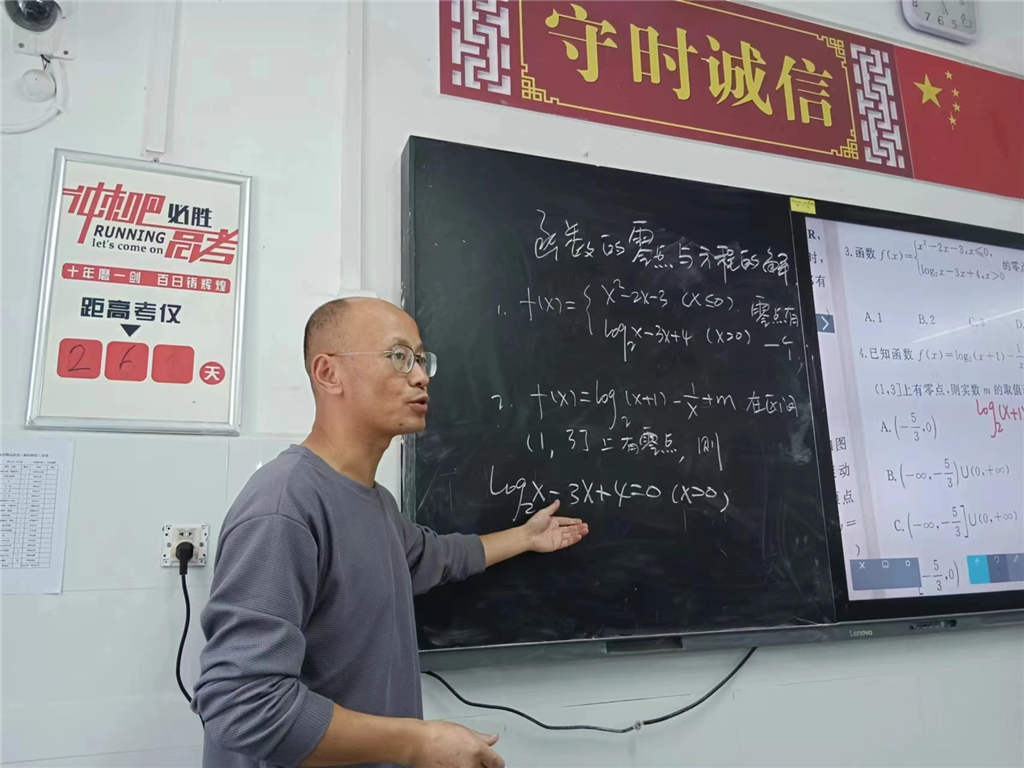 守时诚信
冲刺吧 必胜
RUNNING 高考
let's come on
十年磨一剑 百日铸辉煌
距高考仅
2 6 天
函数的零点与方程的解
1. f(x)={x²-2x-3 (x≤0) 零点有
log₂x-3x+4 (x>0) 一个,
2. f(x)=log₂(x+1)-1/x+m 在区间
(1, 3]上有零点, 则
log₂x-3x+4=0 (x>0)
R,
时,
有
3.函数 f(x)={x²-2x-3,x≤0,
log₂x-3x+4,x>0 的零点
A.1 B.2 C.3 D.
4.已知函数 f(x)=log₂(x+1)-1/x
(1,3]上有零点,则实数 m 的取值
log₂(x+1)
A.(-5/3,0)
B.(-∞,-5/3)∪(0,+∞)
C.(-∞,-5/3]∪(0,+∞)
-5/3,0)
图
动
点
Lenovo